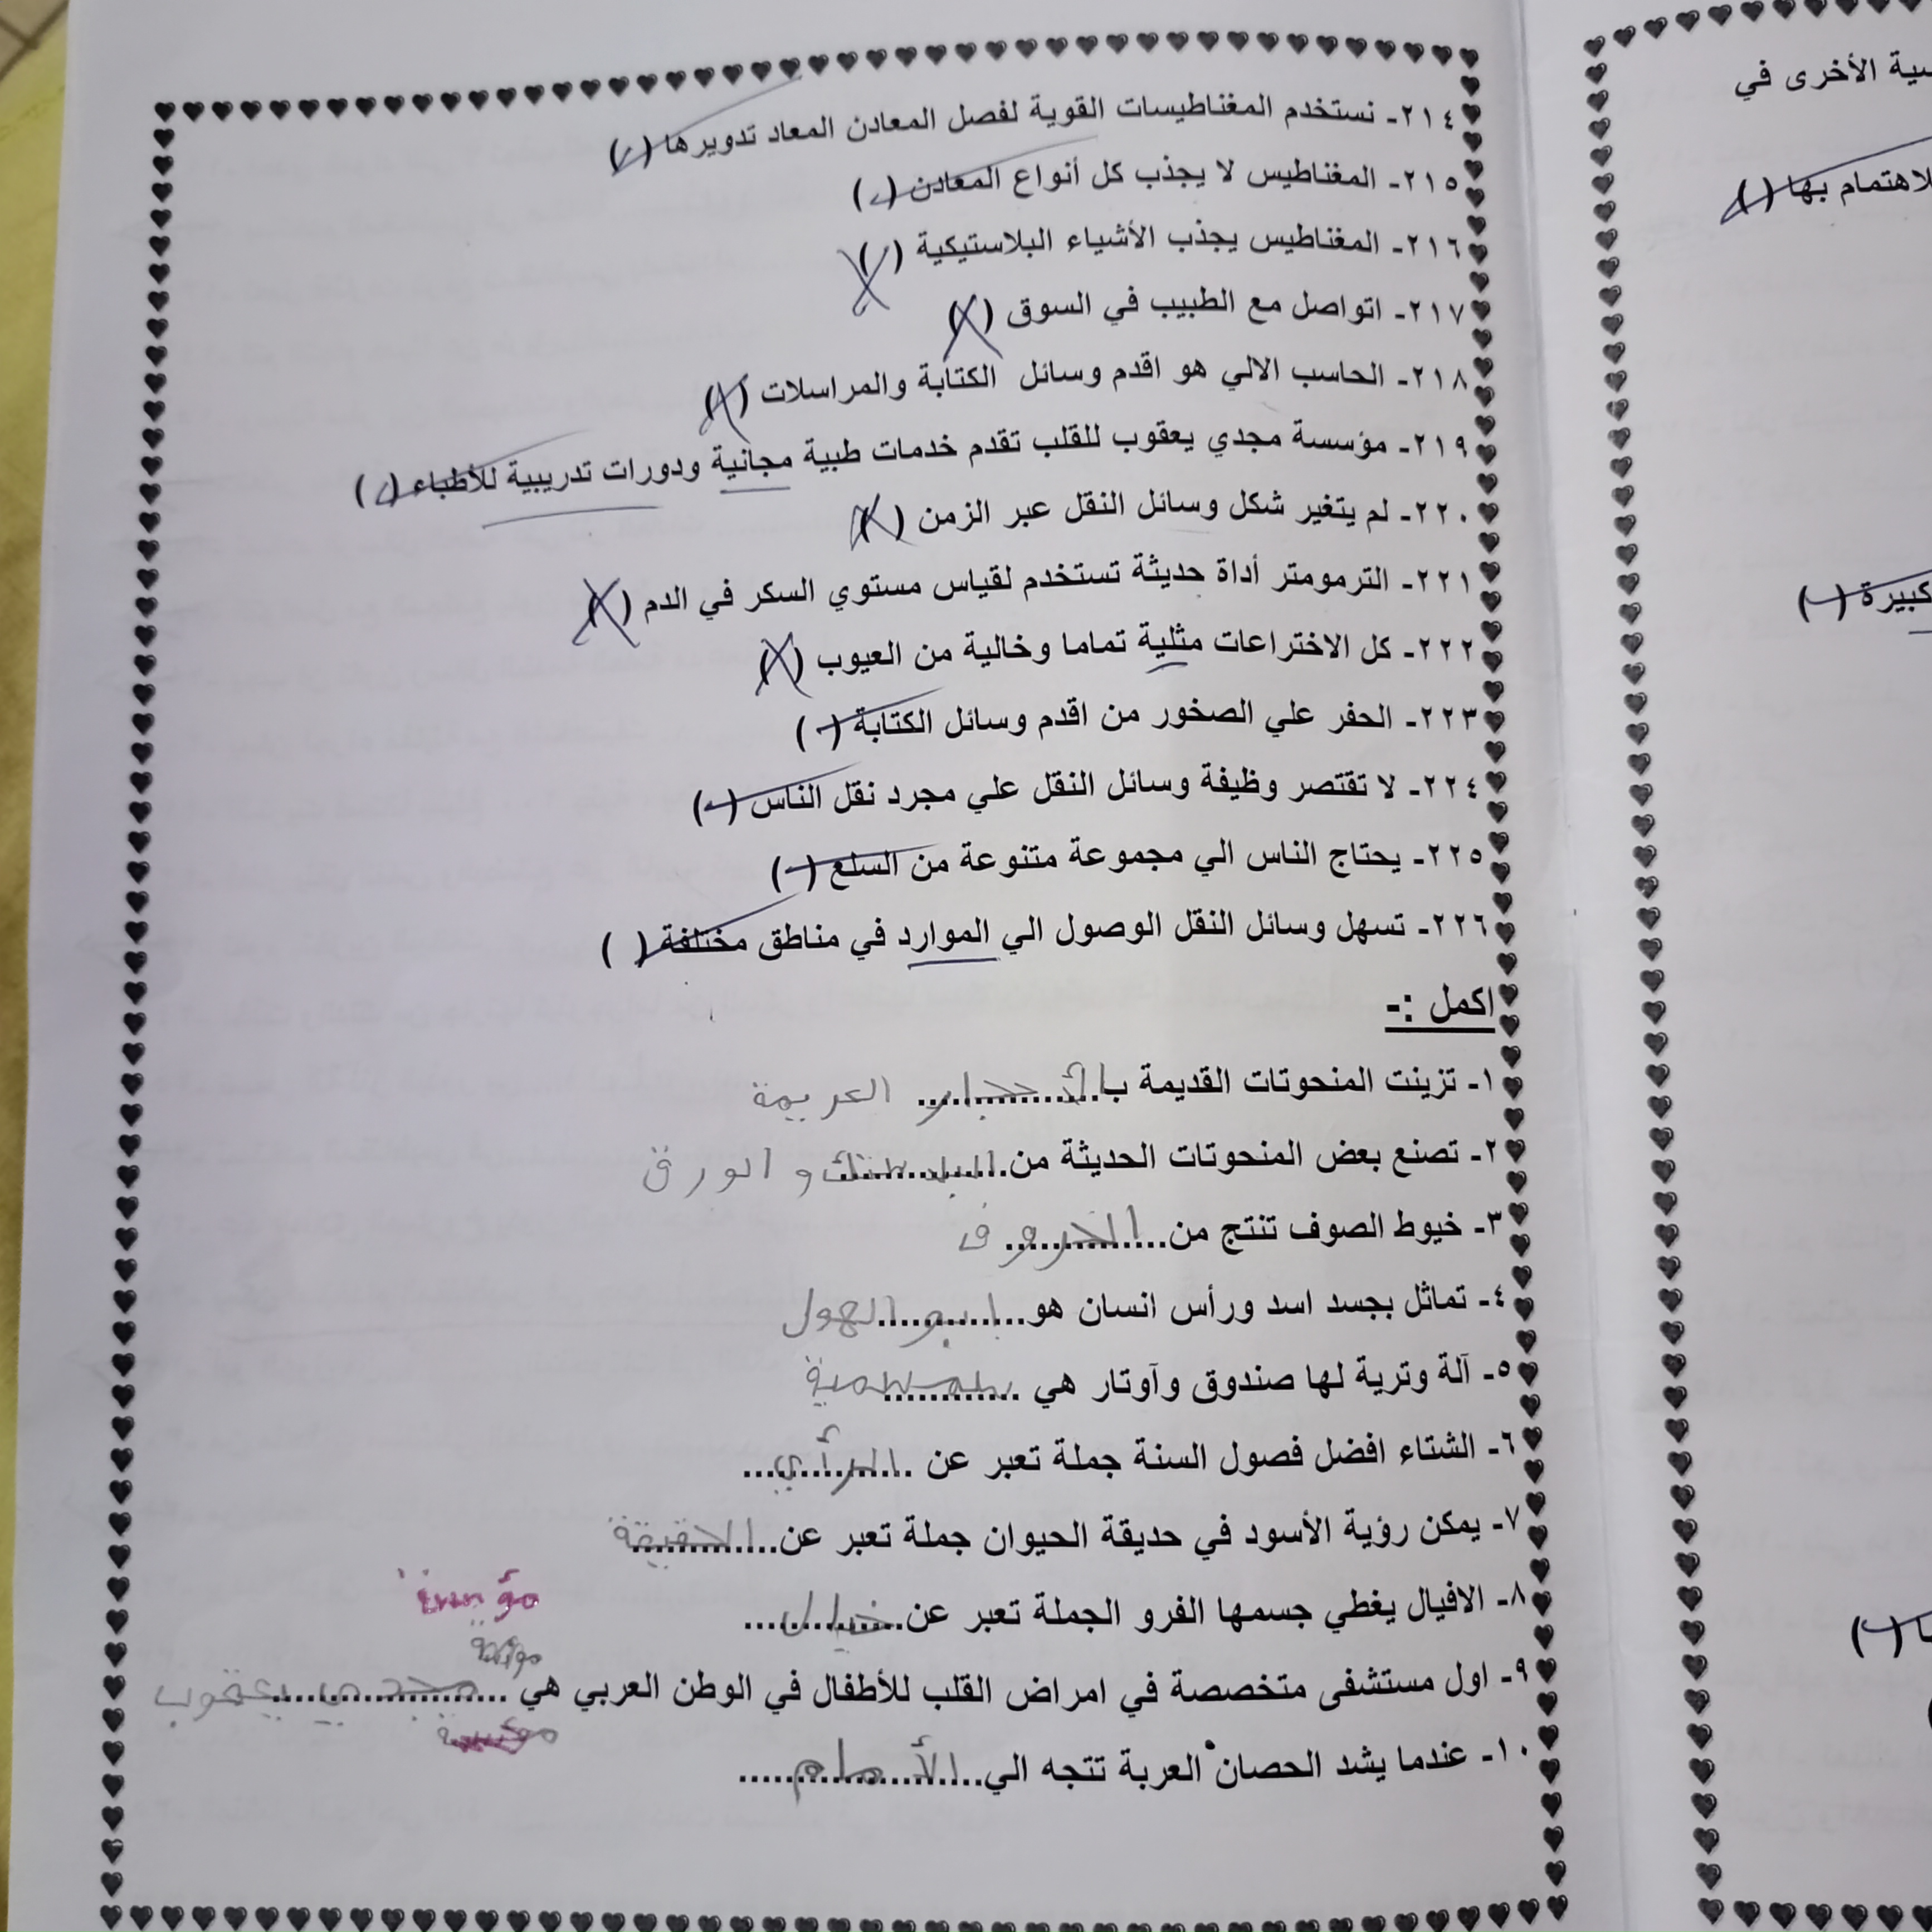 ٢١٤- نستخدم المغناطيسات القوية لفصل المعادن المعاد تدويرها ( )
٢١٥- المغناطيس لا يجذب كل أنواع المعادن ( )
٢١٦- المغناطيس يجذب الأشياء البلاستيكية ( )
٢١٧- اتواصل مع الطبيب في السوق ( X )
٢١٨- الحاسب الالي هو اقدم وسائل الكتابة والمراسلات ( X )
٢١٩- مؤسسة مجدي يعقوب للقلب تقدم خدمات طبية مجانية ودورات تدريبية للأطباء ( )
٢٢٠- لم يتغير شكل وسائل النقل عبر الزمن ( X )
٢٢١- الترمومتر أداة حديثة تستخدم لقياس مستوي السكر في الدم ( X )
٢٢٢- كل الاختراعات مثلية تماما وخالية من العيوب ( X )
٢٢٣- الحفر علي الصخور من اقدم وسائل الكتابة ( )
٢٢٤- لا تقتصر وظيفة وسائل النقل علي مجرد نقل الناس ( )
٢٢٥- يحتاج الناس الي مجموعة متنوعة من السلع ( )
٢٢٦- تسهل وسائل النقل الوصول الي الموارد في مناطق مختلفة ( )
اكمل :-
١- تزينت المنحوتات القديمة ب الأحجار الكريمة
٢- تصنع بعض المنحوتات الحديثة من البلاستك و الورق
٣- خيوط الصوف تنتج من الخروف
٤- تماثل بجسد اسد ورأس انسان هو ابو الهول
٥- آلة وترية لها صندوق وآوتار هي سمسمية
٦- الشتاء افضل فصول السنة جملة تعبر عن الرأي
٧- يمكن رؤية الأسود في حديقة الحيوان جملة تعبر عن الحقيقة
٨- الافيال يغطي جسمها الفرو الجملة تعبر عن خيال
٩- اول مستشفى متخصصة في امراض القلب للأطفال في الوطن العربي هي مجدي يعقوب
١٠- عندما يشد الحصان العربة تتجه الي الأمام
سية الأخرى في
لاهتمام بها ( )
كبيرة ( )